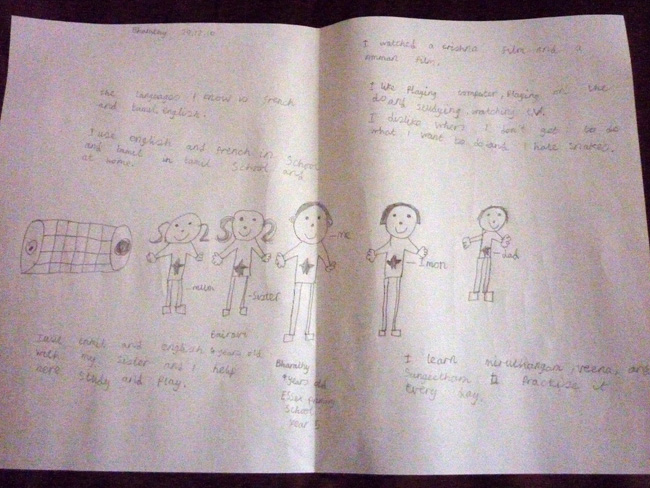 Bharathy
the languages I know is french
and tamil, english.
I use english and french in School
and tamil in tamil School and
at home.
I watched a krishna film and a
Amman film.
I like Playing computer, Playing
and Studying, watching t.v.
I dislike when I don't get to do
what I want to do and I hate snakes.
me
mum
sister
dad
I use tamil and english
with my sister and I help
here Study and Play.
years old
Bharathy
years old
Essex Primary
School
year 5
I learn miruthangam, veena, and
Sangeetham. I Practise it
every day.